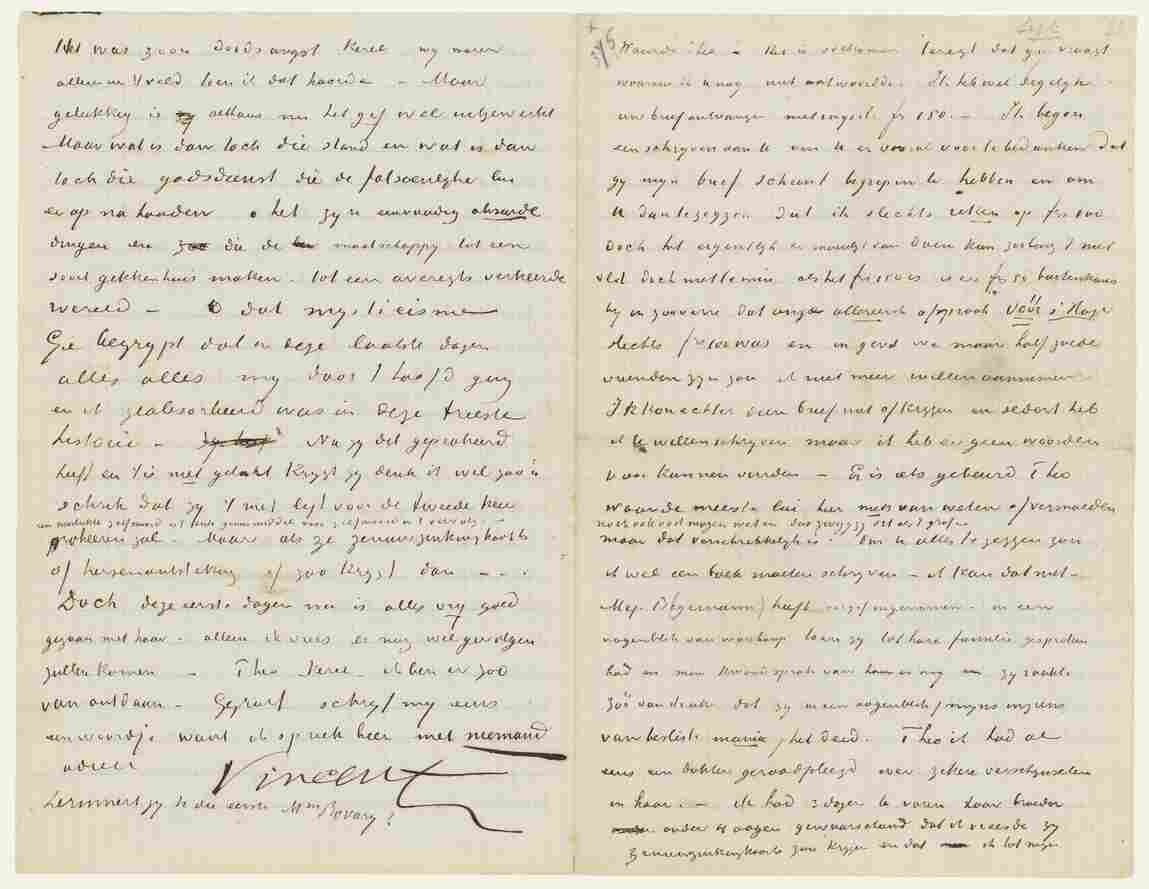 Het was zoon doodsangst kerel wy waren
alleen in 't veld toen ik dat hoorde – Maar
gelukkig is althans nu het gif wel uitgewerkt
Maar wat is dan toch die stand en wat is dan
toch die godsdienst die de fatsoenlyke lui
er op na houden o het zyn eenvoudig absurde
dingen en die de maatschappy tot een
soort gekkenhuis maken. tot een averegts verkeerde
wereld – O dat mysticisme
Ge begrypt dat in deze laatste dagen
alles alles my door 't hoofd ging
en ik geabsorbeerd was in deze treeste
historie – Nu zy dit geprobeerd
heeft en 't is niet gelukt krygt zy denk ik wel zoo'n
schrik dat zy 't niet ligt voor de tweede keer
een mislukte zelfmoord is het beste geneesmiddel voor zelfmoord in 't vervolg –
probeeren zal. – Maar als ze zenuwzinkingkoorts
of hersenontsteking of zoo krygt dan – – .
Doch deze eerste dagen nu is alles vry goed
gegaan met haar – alleen ik vrees er nog wel gevolgen
zullen komen – Theo kerel – ik ben er zoo
van ontdaan – Gegroet schryf my eens
een woordje want ik spreek hier met niemand
adieu
Vincent
herinnert gy U die eerste Mme Bovary?
Waarde Theo – Het is volkomen teregt dat gy vraagt
waarom ik U nog niet antwoordde. Ik heb wel degelyk
uw brief ontvangen met ingesl. fr 150. – Ik begon
een schryven aan U om U er vooral voor te bedanken dat
gy myn brief scheent begrepen te hebben en om
U dan te zeggen dat ik slechts reken op frs 100
doch het eigenlyk er moeielyk van doen kan zoolang 't niet
vlot doch niettemin als het frs 150 is is er frs 50 buitenkans
by in zooverre dat onze allereerste afspraak vóór s'Hage
slechts fr 100 was en ingeval we maar half goede
vrienden zyn zou ik niet meer willen aannemen
Ik kon echter dien brief niet afkrygen en sedert heb
ik U willen schryven maar ik heb er geen woorden
voor kunnen vinden – Er is iets gebeurd Theo
waarvan de meeste lui hier niets van weten of vermoeden
noch ooit mogen weten dus zwyg gy als 't graf –
maar dat verschrikkelyk is. Om U alles te zeggen zou
ik wel een boek moeten schryven – ik kan dat niet –
Mej. Begemann heeft vergif ingenomen – in een
oogenblik van wanhoop toen zy tot hare familie gesproken
had en men kwaad sprak van haar en my en zy raakte
zóó van de wys dat zy in een oogenblik myns inziens
van besliste manie het deed. Theo ik had al
eens een dokter geraadpleegd over zekere verschynselen
in haar. – Ik had 3 dagen te voren haar broeder
onder 4 oogen gewaarschuwd dat ik vreesde zy
zenuwzinkingkoorts zou krygen en dat ik tot myn